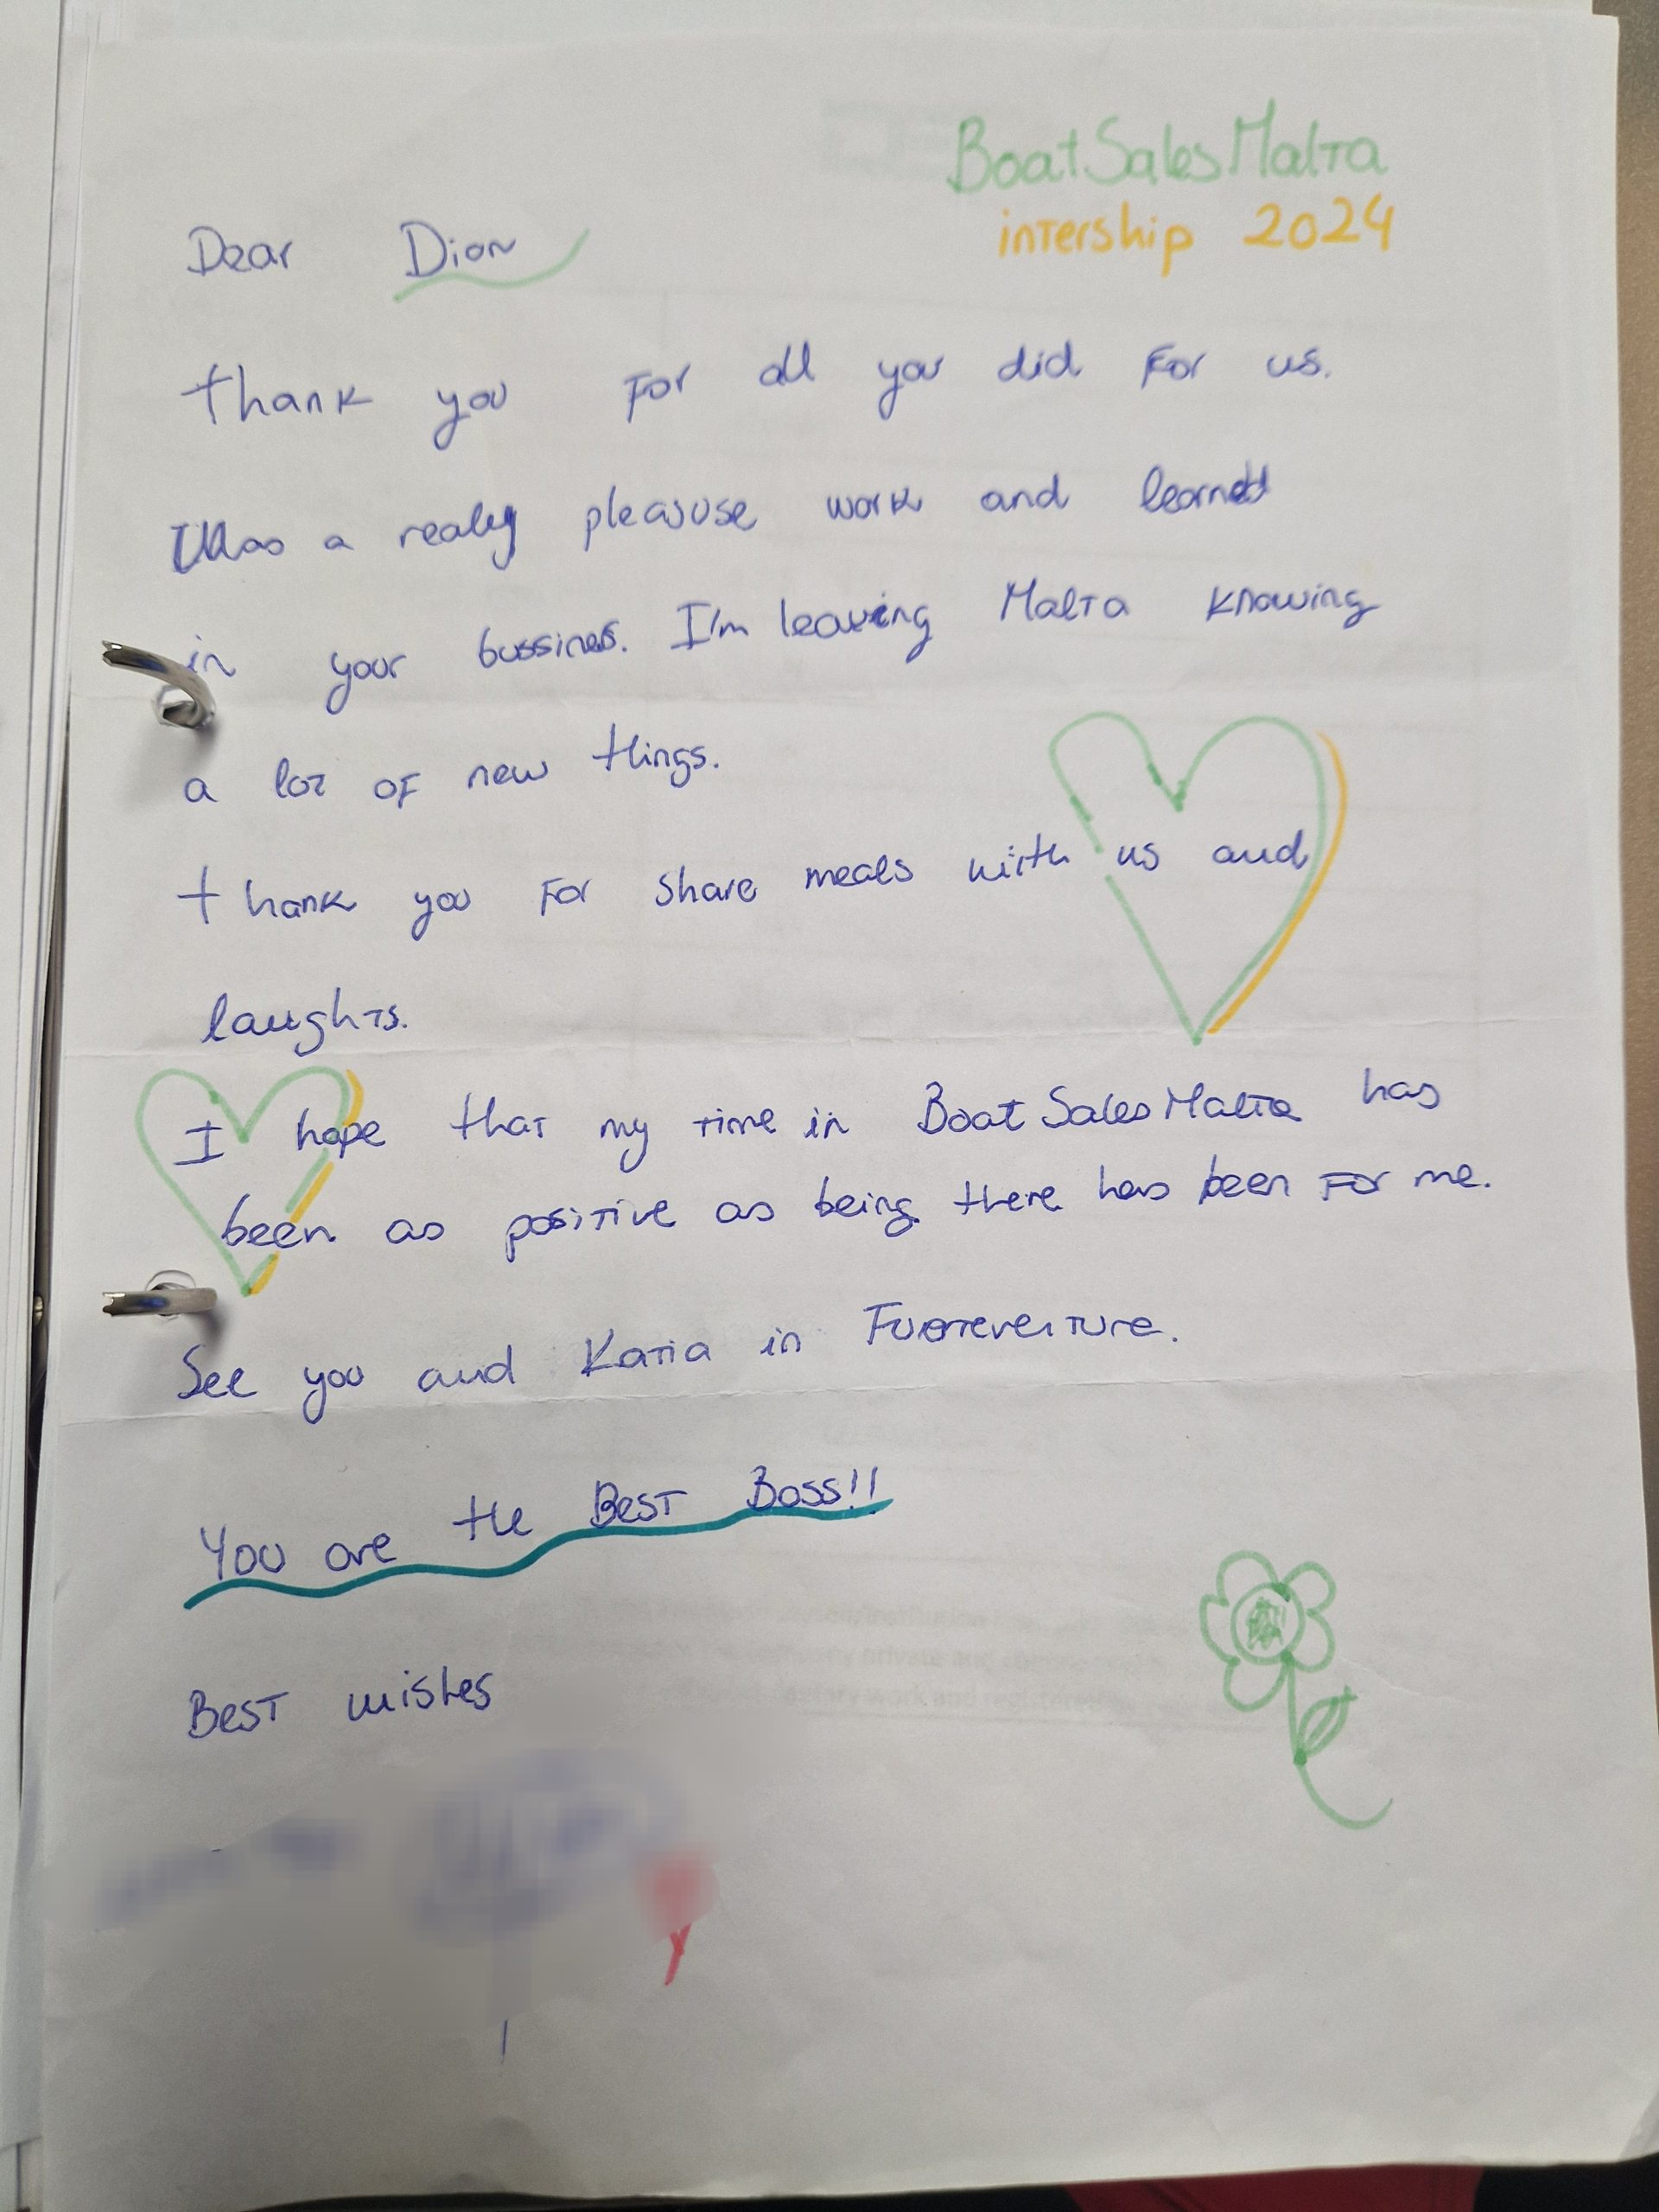 BoatSalesMalta
intership 2024
Dear Dion
thank you For all you did For us.
Was a really pleasuse work and learned
in your bussines. I'm leaving Malta knowing
a lot of new things.
thank you For share meals with us and
laughts.
I hope that my time in BoatSalesMalta has
been as positive as being there has been For me.
See you and Katia in
You are the Best Boss!!
Best wishes